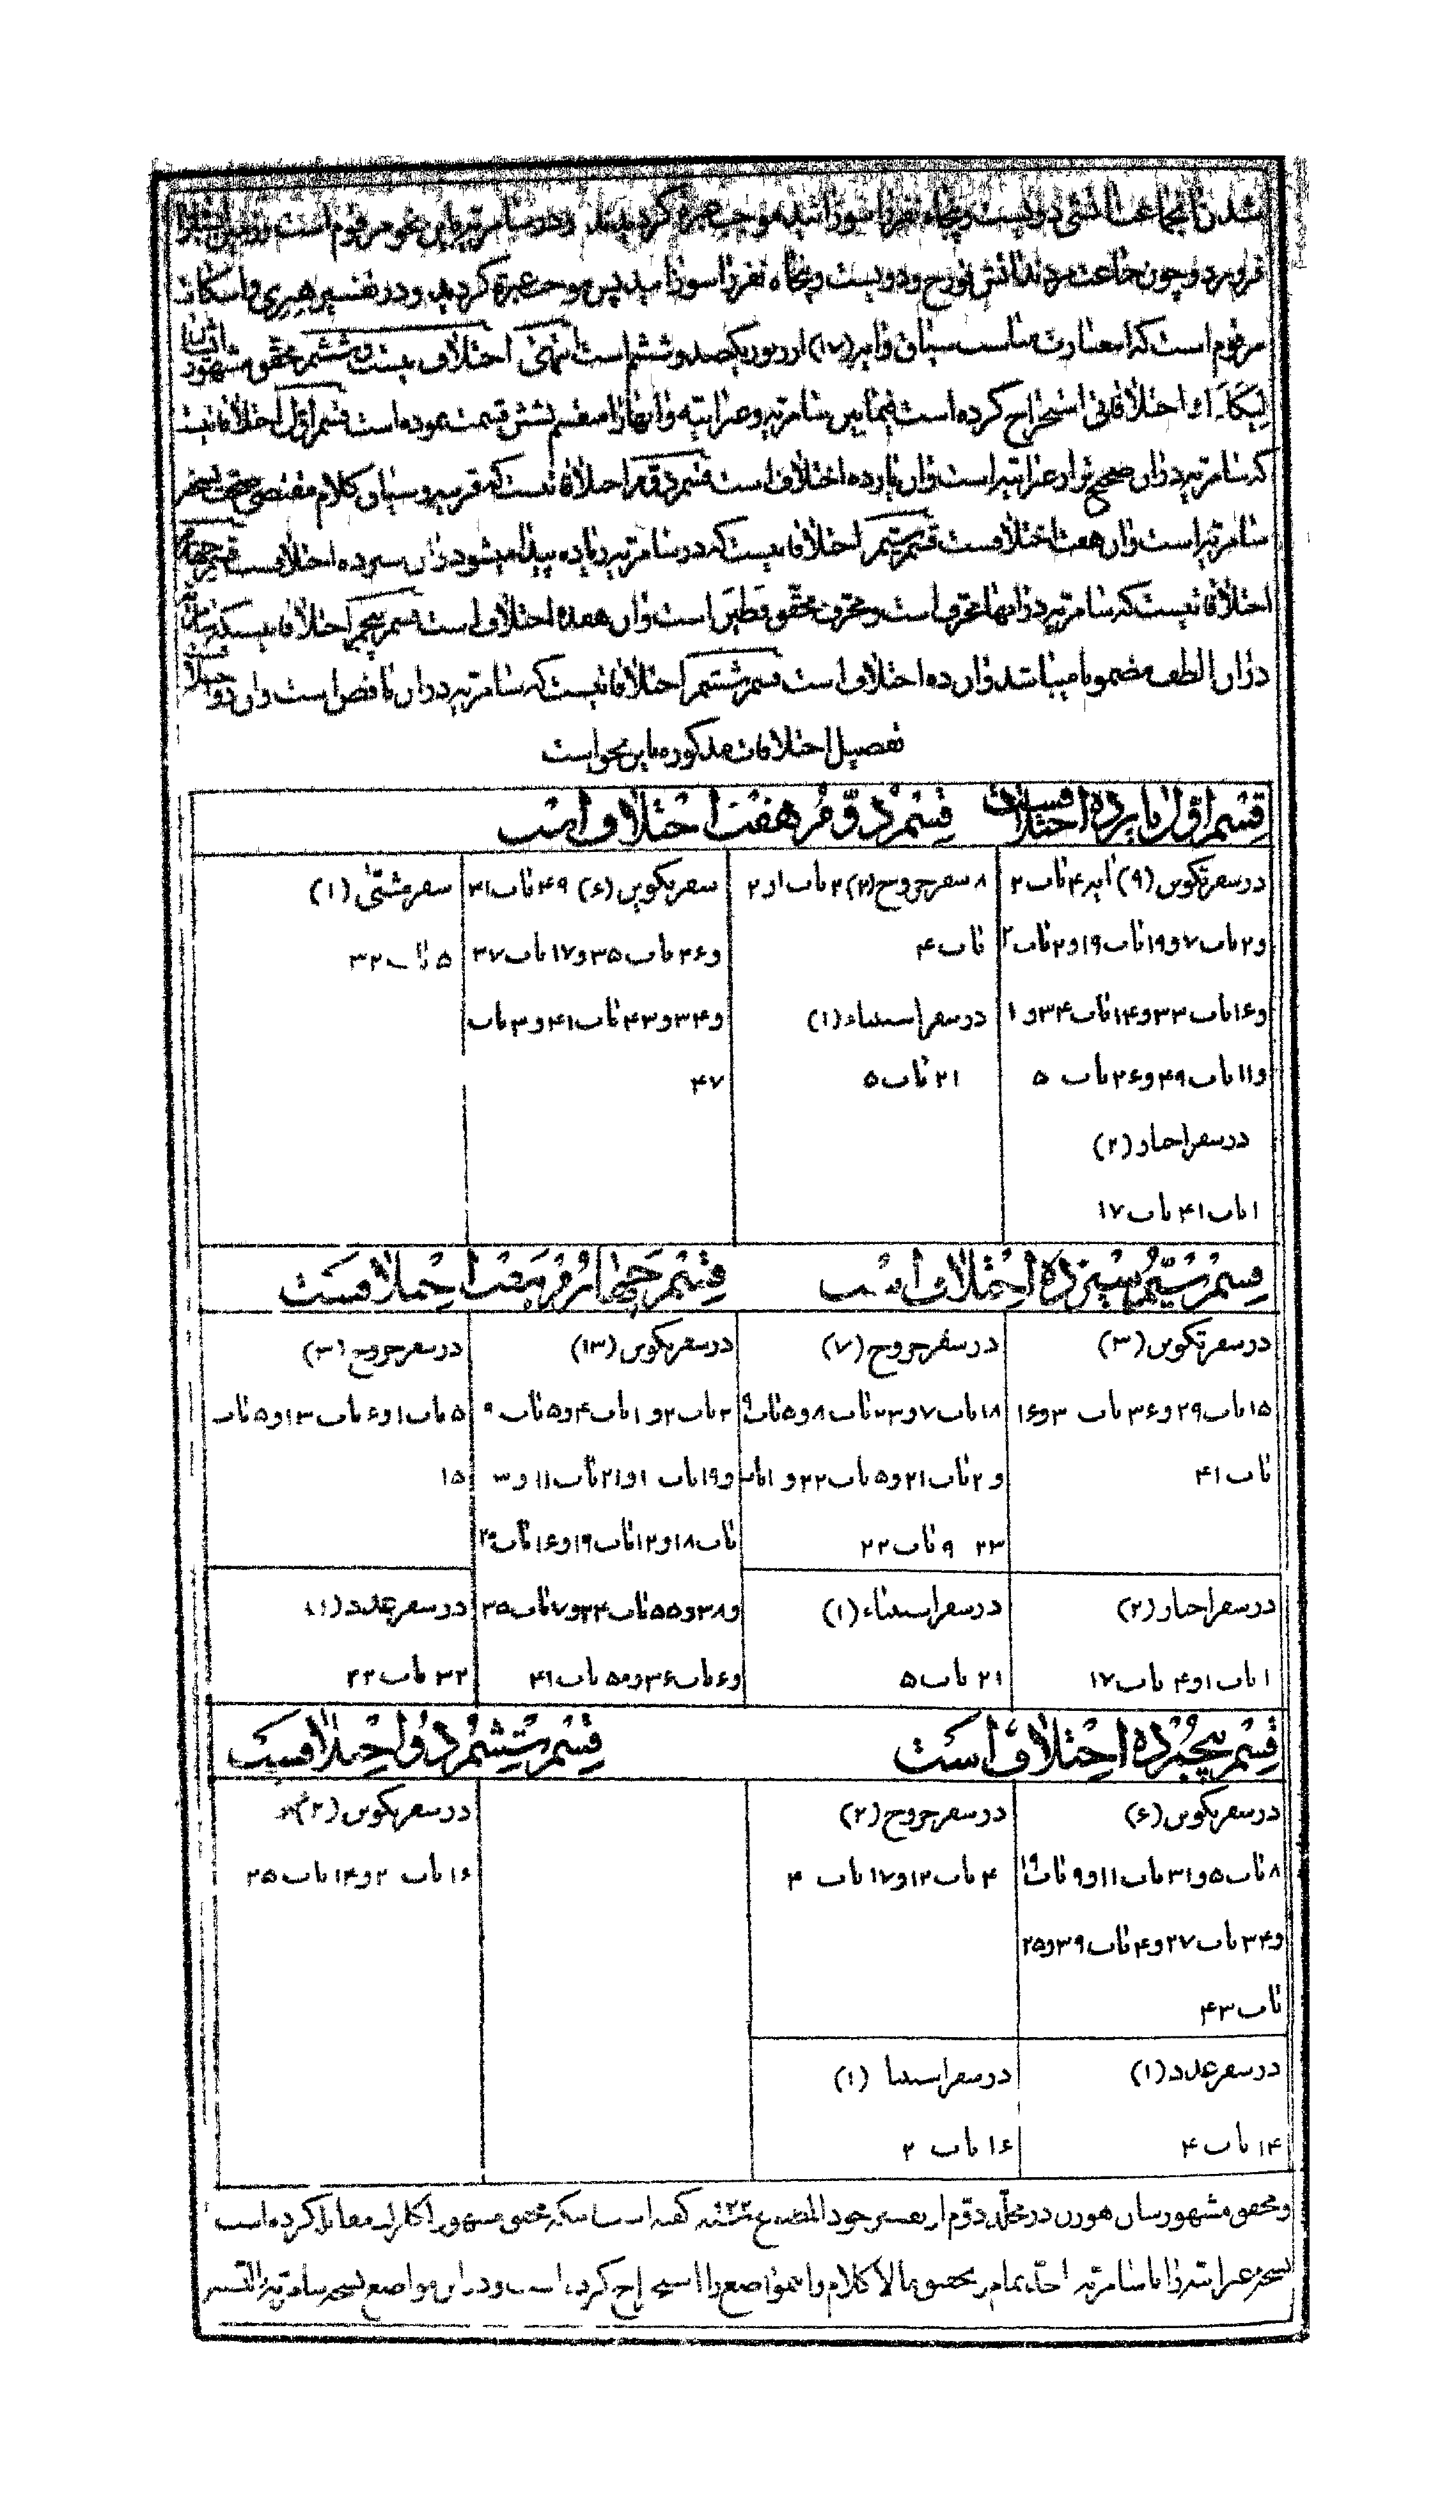 شدن آنجماعت آتشی دویست و پنجاه نفر را سوزانیده موجب عبرة کردیدند و در سامریه باین نحو مرقوم است زمین ایشانرا
فرو برد و چون جماعت مردند آتش قورح و دویست و پنجاه نفر را سوزانید پس موجب عبرة کردید و در تفسیر هنری و اسکات
مرقوم است که این عبارت مناسب سیاق و آیه (۱۷) از زبور یکصد و ششم است انتهی اختلاف بیست و ششم محقق مشهور ایشان
لیکلرک او اختلافاتی استخراج کرده است فیمابین سامریه و عبرانیه و آنها را منقسم بشش قسمت نموده است قسم اول اختلافاتیست
که سامریه در آن صحیح تر از عبرانیه است و آن یازده اختلاف است قسم دوّم اختلافاتیست که قرینه و سیاق کلام مقتضی صحت نسخه
سامریه است و آن هفت اختلافست قسم سیّم اختلافاتیست که در سامریه زیاده پیدا میشود و آن سیزده اختلافست قسم چهارم
اختلافاتیست که سامریه در آنها محرّف است و محرّف محقق و فطین است و آن هفده اختلاف است قسم پنجم اختلافاتیست که سامریه
در آن الطف مضموناً میباشد و آن ده اختلاف است قسم ششم اختلافاتیست که سامریه در آن ناقص است و آن دو اختلافست
تفصیل اختلافات مذکوره باین نحو است
قسم اوّل یازده اختلافست قسم دوّم هفت اختلاف است
در سفر تکوین (۹) آیه ۴ باب ۲
و ۳ باب ۷ و ۱۹ باب ۱۹ و ۲ باب ۲
و ۱۶ باب ۳۳ و ۱۴ باب ۳۴ و ۱
و ۱۱ باب ۴۹ و ۲۶ باب ۵
در سفر احبار (۲)
۱ باب ۴۱ باب ۱۷
۸ سفر خروج (۲) ۲ باب ۱ و ۲
باب ۴
در سفر استثناء (۱)
۲۱ باب ۵
سفر تکوین (۶) ۴۹ باب ۳۱
و ۲۶ باب ۳۵ و ۱۷ باب ۳۷
و ۳۴ و ۴۳ باب ۴۱ و ۳ باب
۴۷
سفر مثنّی (۱)
۵ باب ۳۲
قسم سیّم سیزده اختلاف است قسم چهارم هفت اختلافست
در سفر تکوین (۳)
۱۵ باب ۲۹ و ۳۶ باب ۳ و ۱۶
باب ۴۱
در سفر خروج (۷)
۱۸ باب ۷ و ۲۳ باب ۸ و ۵ باب ۹
و ۲ باب ۲۱ و ۵ باب ۲۲ و ۱ باب
۲۳ ۹ باب ۲۲
در سفر تکوین (۱۳)
۲ باب ۲ و ۱ باب ۴ و ۵ باب ۹
و ۱۹ باب ۱ و ۲۱ باب ۱۱ و ۳
باب ۱۸ و ۱۲ باب ۱۹ و ۱۶ باب ۲۰
و ۳۸ و ۵۵ باب ۲۴ و ۷ باب ۳۵
و ۶ باب ۳۶ و ۵۰ باب ۴۱
در سفر خروج (۳)
۵ باب ۱ و ۶ باب ۱۳ و ۵ باب
۱۵
در سفر احبار (۲)
۱ باب ۱ و ۴ باب ۱۷
در سفر استثناء (۱)
۲۱ باب ۵
در سفر عدد (۱)
۳۲ باب ۲۲
قسم پنجم ده اختلاف است قسم ششم دو اختلافست
در سفر تکوین (۶)
۸ باب ۵ و ۳۱ باب ۱۱ و ۹ باب ۱۹
و ۳۴ باب ۲۷ و ۴ باب ۳۹ و ۲۵
باب ۴۳
در سفر خروج (۲)
۴ باب ۱۲ و ۱۷ باب ۴
در سفر تکوین (۲)
۱۶ باب ۲ و ۱۴ باب ۲۵
در سفر عدد (۱)
۱۴ باب ۴
در سفر استثنا (۱)
۱۶ باب ۲
و محقق مشهور ایشان هورن در جلد دوّم از تفسیر خود المطبوع گفته است که محقق مشهور
نسخه عبرانیه را با سامریه تمام و تحقیق ما لا کلام و این مواضع را استخراج کرده است و در این مواضع نسخه سامریه